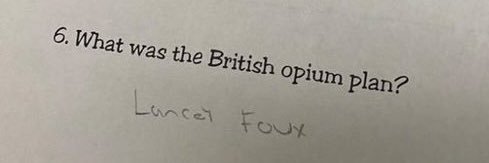 6. What was the British opium plan?
Lancey Foux